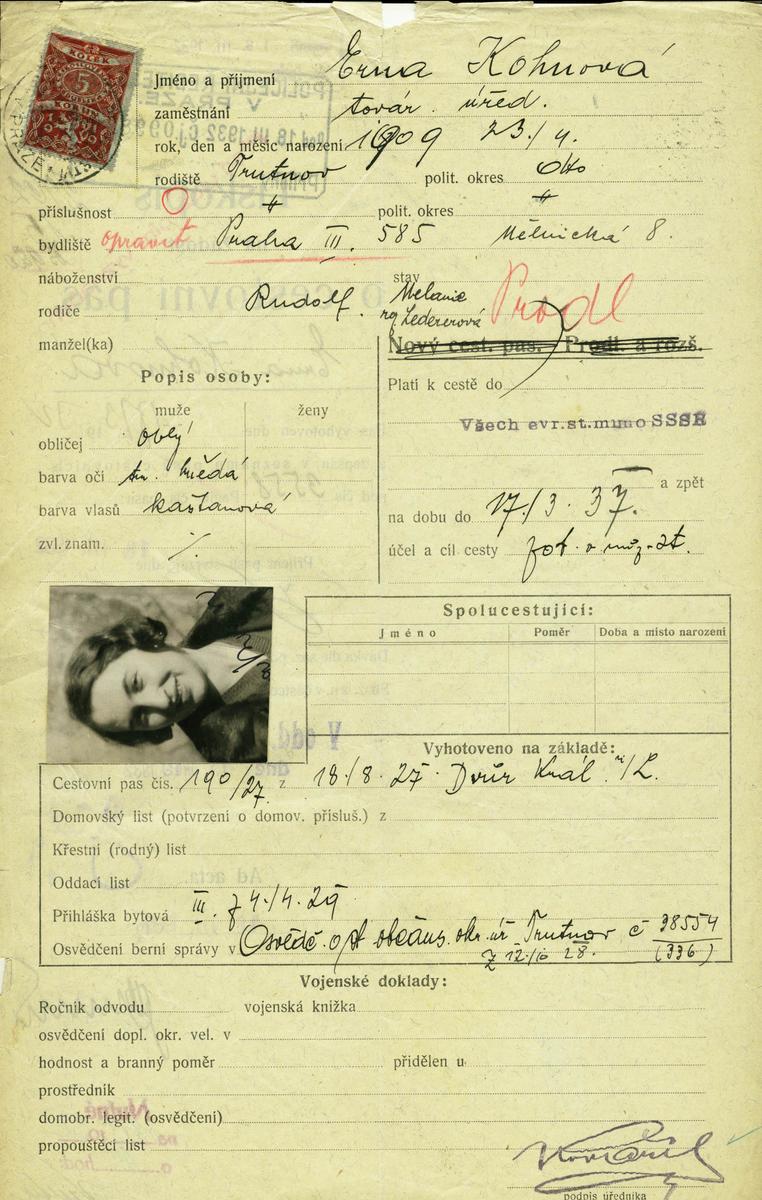 KOLEK
5
Jméno a příjmení Erna Kohnová
zaměstnání továr. úřed.
rok, den a měsíc narození 1909 23./4.
rodiště Trutnov polit. okres dtto
příslušnost " polit. okres "
bydliště opravit Praha III. 585 Mělnická 8.
náboženství stav
rodiče Rudolf. Melanie
roz Ledererová
Prodl
manžel(ka)
Nový cest. pas. Prodl. a rozš.
Popis osoby:
Platí k cestě do
muže ženy
Všech evr.st.mimo SSSR
obličej oblý
barva očí tm. hnědá
a zpět
barva vlasů kaštanová
na dobu do 17./3. 37.
zvl. znam. ./.
účel a cíl cesty
Spolucestující:
Jméno Poměr Doba a místo narození
Vyhotoveno na základě:
Cestovní pas čís. 190/27 z 18./8. 27. Dvůr Král. n/L.
Domovský list (potvrzení o domov. přísluš.) z
Křestní (rodný) list
Oddací list
Přihláška bytová III. z 4./4. 29
Osvědčení berní správy v Osvědč. o st občans. okr. úř Trutnov č 38554
z 12./10 28. (336)
Vojenské doklady:
Ročník odvodu vojenská knižka
osvědčení dopl. okr. vel. v
hodnost a branný poměr přidělen u
prostředník
domobr. legit. (osvědčení)
propouštěcí list
podpis úředníka